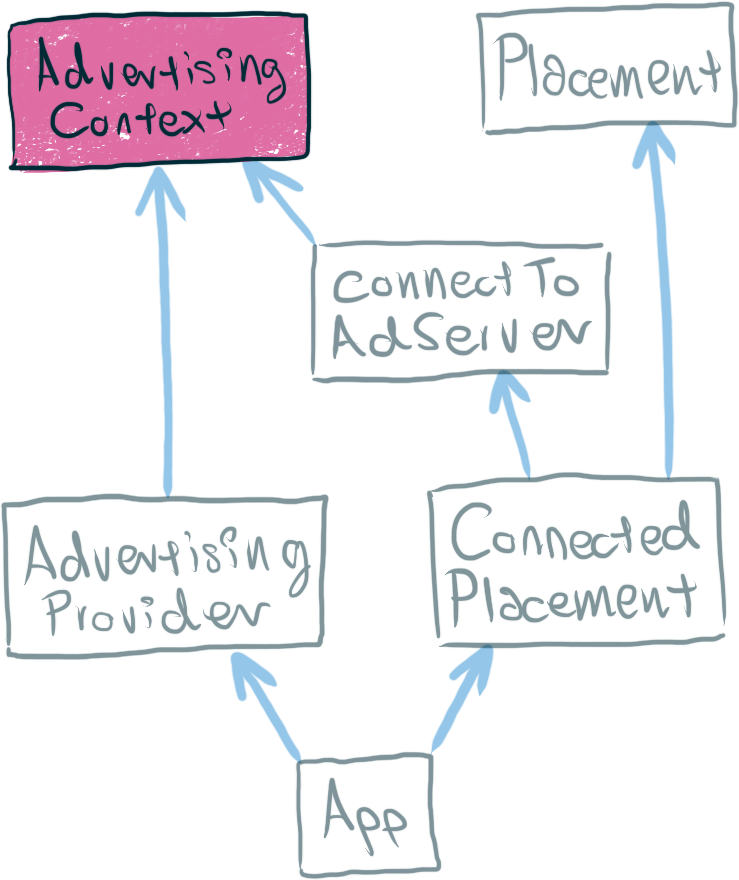 Advertising
Context
Placement
Connect To
AdServer
Advertising
Provider
Connected
Placement
App